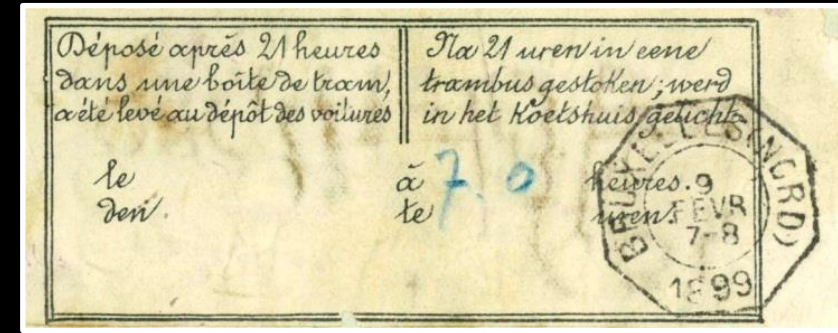 Déposé après 21 heures
dans une boîte de tram,
a été levé au dépôt des voitures
Na 21 uren in eene
trambus gestoken; werd
in het Koetshuis gelicht
le à 7.0 heures.
den te uren.
BRUXELLES (NORD)
9
FEVR
7-8
1899